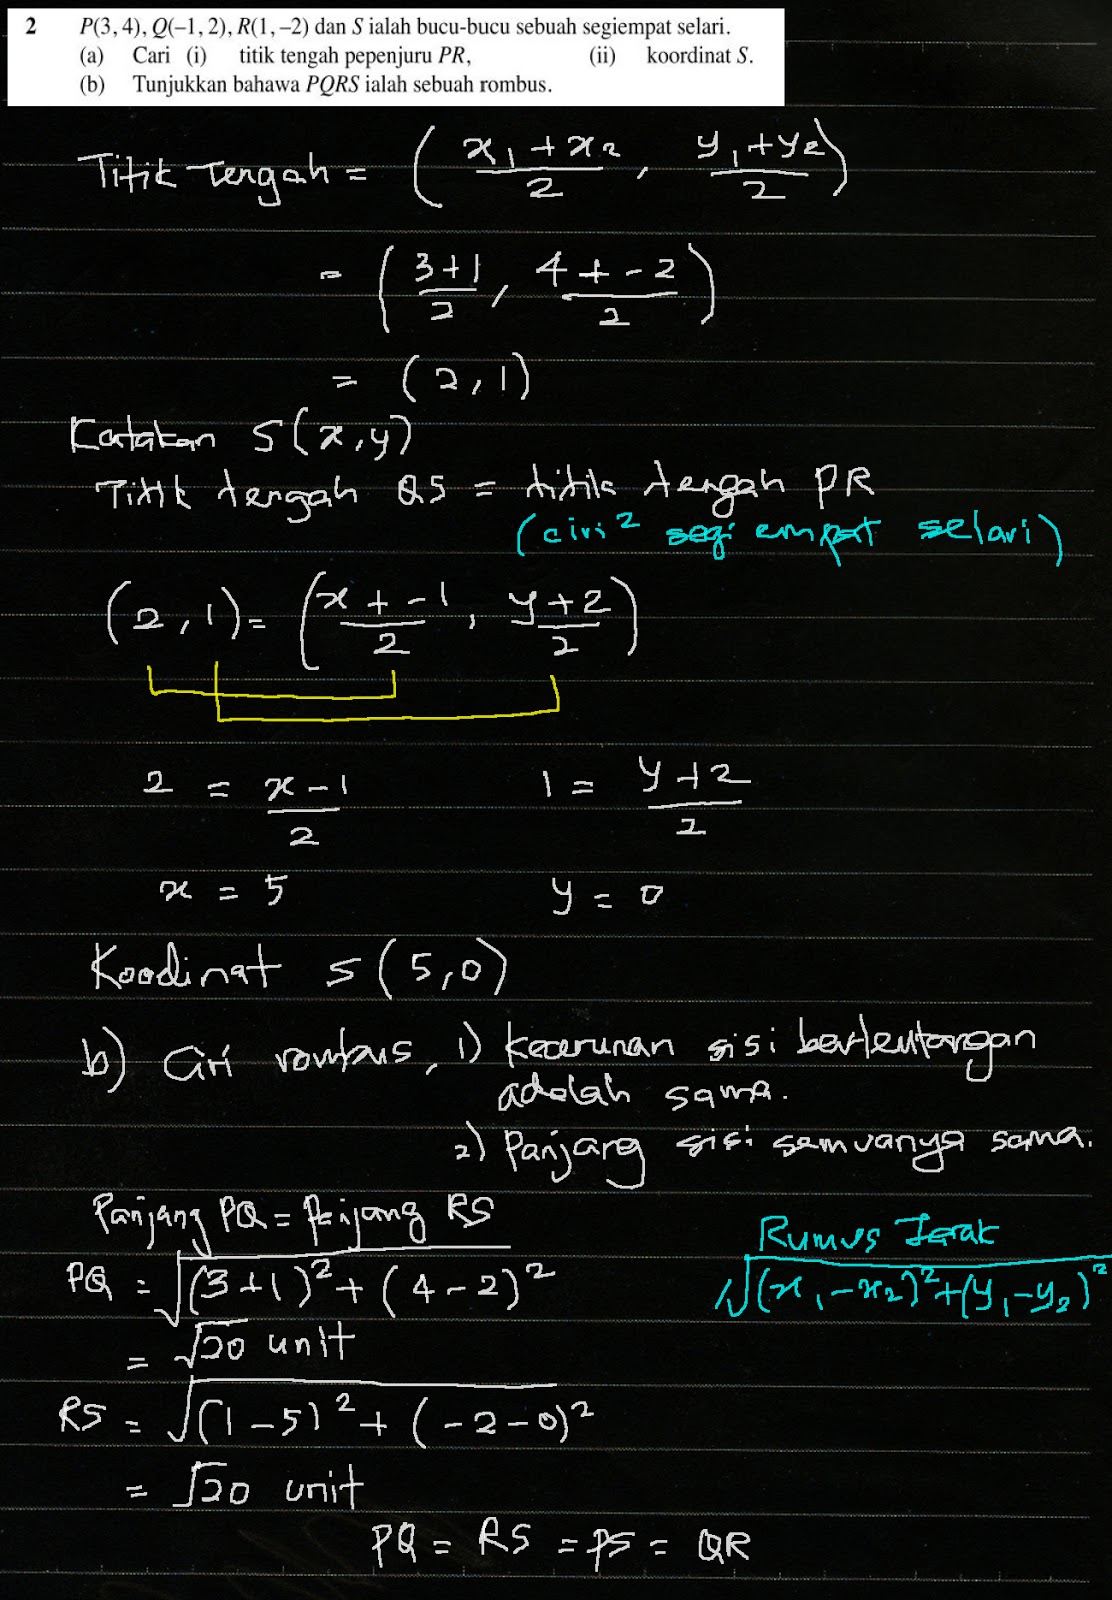 2 P(3, 4), Q(–1, 2), R(1, –2) dan S ialah bucu-bucu sebuah segiempat selari.
(a) Cari (i) titik tengah pepenjuru PR, (ii) koordinat S.
(b) Tunjukkan bahawa PQRS ialah sebuah rombus.
Titik tengah = ( (x₁ + x₂)/2 , (y₁ + y₂)/2 )
= ( (3+1)/2 , (4 + -2)/2 )
= (2, 1)
Katakan S(x, y)
Titik tengah QS = titik tengah PR
(ciri² segi empat selari)
(2, 1) = ( (x + -1)/2 , (y + 2)/2 )
2 = (x - 1)/2 1 = (y + 2)/2
x = 5 y = 0
Koodinat S (5, 0)
b) Ciri rombus, 1) kecerunan sisi bertentangan
adalah sama.
2) Panjang sisi semuanya sama.
Panjang PQ = Panjang RS
Rumus Jarak
PQ = √((3+1)² + (4-2)²)
√((x₁-x₂)² + (y₁-y₂)²)
= √20 unit
RS = √((1-5)² + (-2-0)²)
= √20 unit
PQ = RS = PS = QR